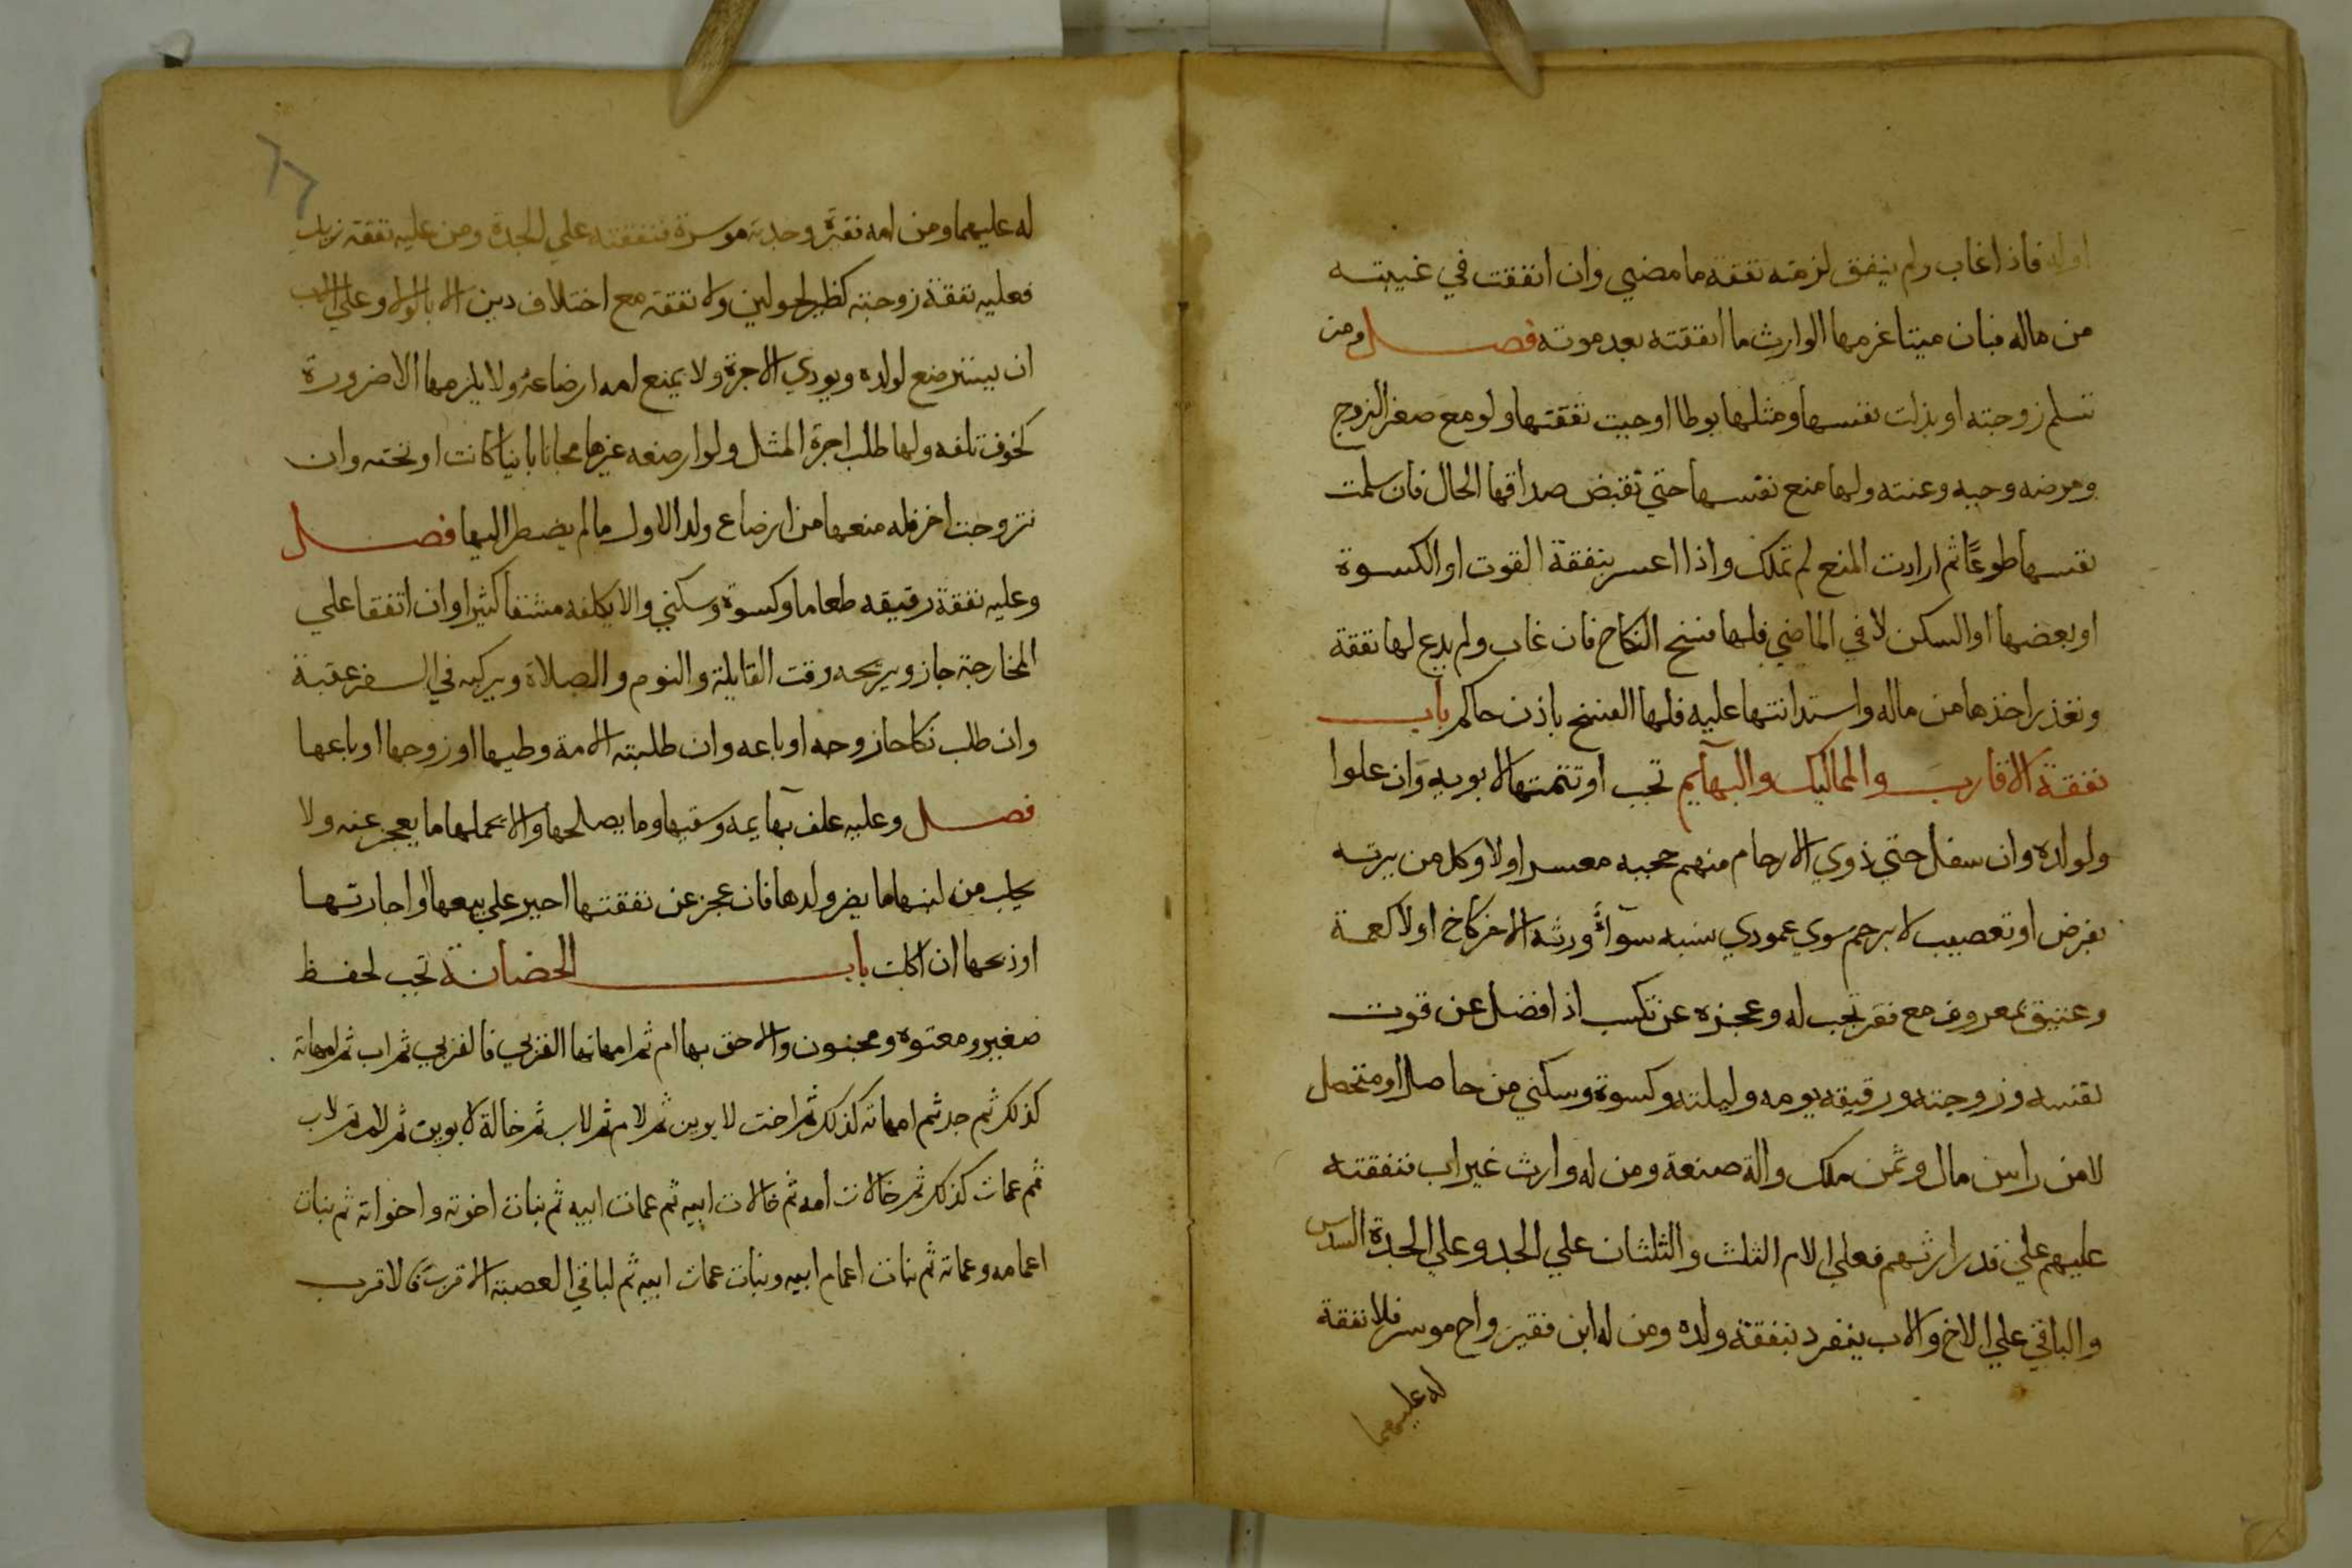 اوله فاذا غاب ولم ينفق لزمته نفقة ما مضي وان انفقت في غيبته
من ماله فبان ميتا غرمها الوارث ما انفقته بعد موته فصل ومن
تسلم زوجته او بذلت نفسها ومثلها يوطا وجبت نفقتها ولو مع صغر الزوج
ومرضه وجبه وعنته ولها منع نفسها حتي تقبض صداقها الحال فان سلمت
نفسها طوعًا ثم ارادت المنع لم تملك واذا اعسر بنفقة القوت او الكسوة
او بعضها او السكن لا في الماضي فلها فسخ النكاح فان غاب ولم يدع لها نفقة
وتعذر اخذها من ماله واستدانتها عليه فلها الفسخ باذن حاكم باب
نفقة الاقارب والمماليك والبهآيم تجب او تتمتها لابويه وان علوا
ولولده وان سفل حتي ذوي الارحام منهم حجبه معسر او لا وكل من يرثه
بفرض او تعصيب لا برحم سوي عمودي نسبه سوآء ورثه الاخر كاخ او لا كعمة
وعتيق بمعروف مع فقر تجب له وعجزه عن تكسب اذا فضل عن قوت
نفسه وزوجته ورقيقه يومه وليلته وكسوة وسكني من حاصل او متحصل
لا من راس مال وثمن ملك والة صنعة ومن له وارث غير اب فنفقته
عليهم علي قدر ارثهم فعلي الام الثلث والثلثان علي الجد وعلي الجدة السدس
والباقي علي الاخ والاب ينفرد بنفقة ولده ومن له ابن فقير واخ موسر فلا نفقة
له عليهما
له عليهما ومن امه فقيرة وجدته موسرة فنفقته علي الجدة ومن عليه نفقة زيد
فعليه نفقة زوجته كظير لحولين ولا نفقة مع اختلاف دين الا بالولا وعلي الاب
ان يسترضع لولده ويودي الاجرة ولا يمنع امه ارضاعه ولا يلزمها الا ضرورة
كخوف تلفه ولها طلب اجرة المثل ولو ارضعه غيرها مجانا باينا كانت او تحته وان
تزوجت اخر فله منعها من ارضاع ولد الاول ما لم يضطر اليها فصل
وعليه نفقة رقيقه طعاما وكسوة وسكني والا يكلفه مشقا كثيرا وان اتفقا علي
المخارجة جاز ويريحه وقت القايلة والنوم والصلاة ويركبه في السفر عقبة
وان طلب نكاحا زوجه او باعه وان طلبته الامة وطيها او زوجها او باعها
فصل وعليه علف بهآيمه وسقيها وما يصلحها والا يحملها ما يعجز عنه ولا
يحلب من لبنها ما يضر ولدها فان عجز عن نفقتها اجبر علي بيعها او اجارتها
او ذبحها ان اكلت باب الحضانة تجب لحفظ
صغير ومعتوه ومجنون والاحق بها ام ثم امهاتها القربي فالقربي ثم اب ثم امهاته
كذلك ثم جد ثم امهاته كذلك ثم اخت لابوين ثم لام ثم لاب ثم خالة لابوين ثم لام ثم لاب
ثم عمات كذلك ثم خالات امه ثم خالات ابيه ثم عمات ابيه ثم بنات اخوته واخواته ثم بنات
اعمامه وعماته ثم بنات اعمام ابيه وبنات عمات ابيه ثم لباقي العصبة الاقرب فالاقرب